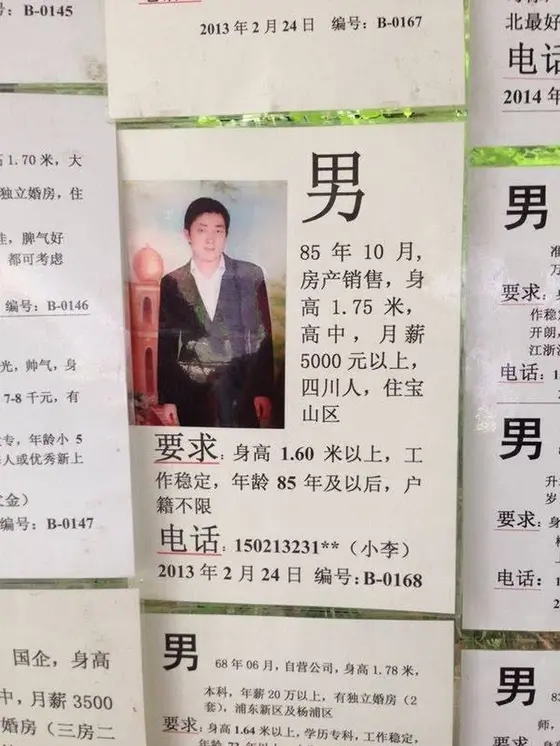 号: B-0145
2013 年 2 月 24 日 编号: B-0167
北最好
电话
2014 年
高 1.70 米, 大
独立婚房, 住
佳, 脾气好
都可考虑
编号: B-0146
光, 帅气, 身
7-8 千元, 有
专, 年龄小 5
人或优秀新上
金)
编号: B-0147
国企, 身高
中, 月薪 3500
婚房 (三房二
男
85 年 10 月,
房产销售, 身
高 1.75 米,
高中, 月薪
5000 元以上,
四川人, 住宝
山区
要求: 身高 1.60 米以上, 工
作稳定, 年龄 85 年及以后, 户
籍不限
电话: 150213231** (小李)
2013 年 2 月 24 日 编号: B-0168
男
68 年 06 月, 自营公司, 身高 1.78 米,
本科, 年薪 20 万以上, 有独立婚房 (2
套), 浦东新区及杨浦区
要求: 身高 1.64 米以上, 学历专科, 工作稳定,
男
万
要求:
作稳定
开朗,
江浙沪
电话: 1
男
升
岁
要求: 身
电话: 1
2
男
师,
要求